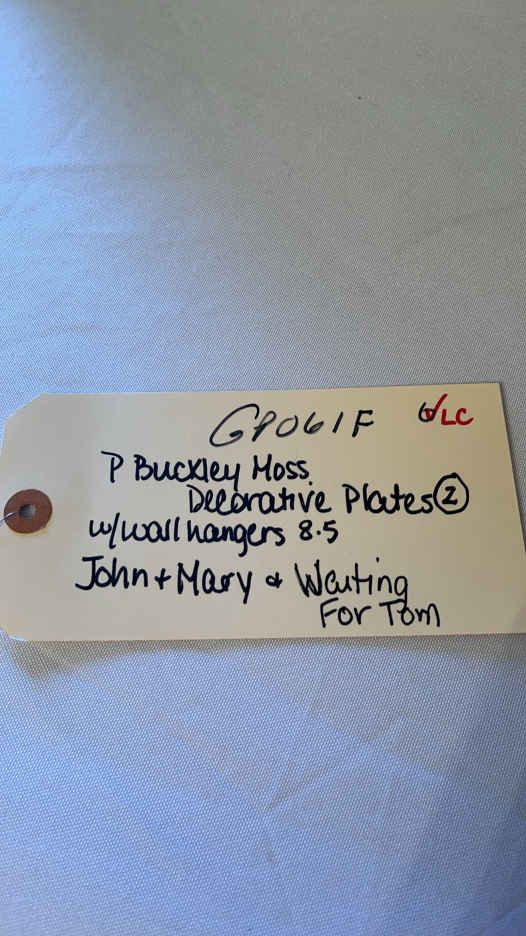 GP061F
LC
P Buckley Moss
Decorative Plates 2
w/wall hangers 8.5
John + Mary & Waiting
For Tom